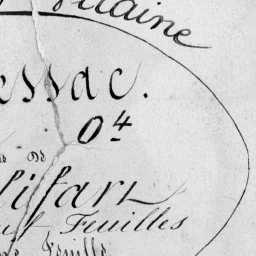 Vilaine
essac.
0⁴
de
lifart
Feuilles
Feuille